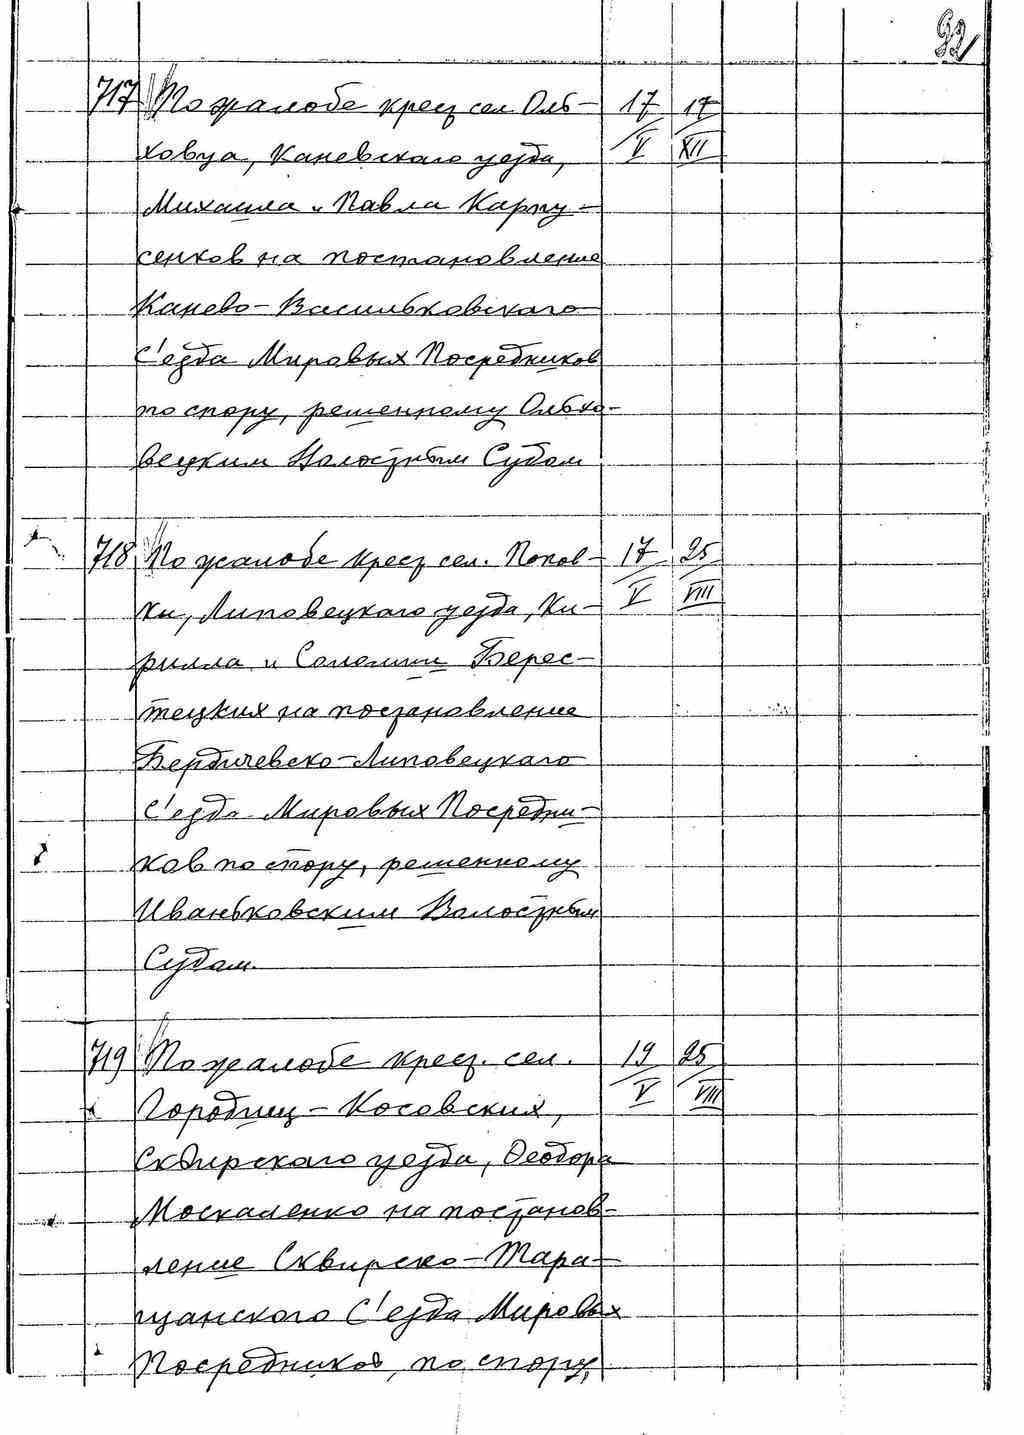 92
717 По жалобе крест сел Оль- 17 17
ховца, Каневскаго уезда, V XII
Михаила и Павла Карпу-
сенков на постановление
Канево-Васильковскаго
С'езда Мировых Посредников
по спору, решенному Ольхо-
вецким Волостным Судом
718 По жалобе крест сел. Попов- 17 25
ки, Липовецкаго уезда, Ки- V VIII
рилла и Соломии Берес-
тецких на постановление
Бердичевско-Липовецкаго
С'езда Мировых Посредни-
ков по спору, решенному
Иваньковским Волостным
Судом.
719 По жалобе крест. сел. 19 25
Городищ-Косовских, V VIII
Сквирскаго уезда, Феодора
Москаленко на постанов-
ление Сквирско-Тара-
щанского С'езда Мировых
Посредников, по спору,